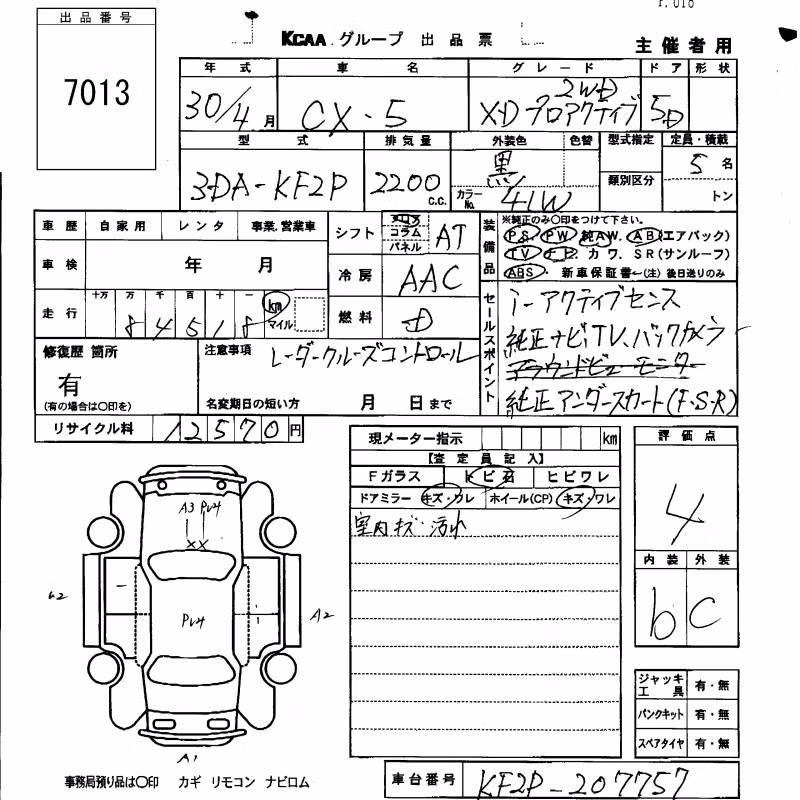 r.018
出品番号
7013
KCAA グループ 出品票
主催者用
年式 車名 グレード ドア 形状
30/4月 CX-5 XD プロアクティブ 2WD 5D
型式 排気量 外装色 色替 型式指定 定員・積載
3DA-KF2P 2200 C.C. 黒 カラーNo. 41W 類別区分 5名 トン
車歴 自家用 レンタ 事業、営業車
シフト コラム パネル AT
装備品
※純正のみ〇印をつけて下さい。
PS PW 純AW AB(エアバック)
TV ナビ カワ SR(サンルーフ)
ABS 新車保証書←(注) 後日送りのみ
車検 年 月
冷房 AAC
走行 十万 万 千 百 十 一
8 4 5 1 8 km マイル
燃料 D
セールスポイント
i-アクティブセンス
純正ナビ、TV、バックカメラ
アラウンドビューモニター
純正アンダースカート(F・S・R)
修復歴 箇所
有
(有の場合は〇印を)
注意事項 レーダークルーズコントロール
名変期日の短い方 月 日まで
リサイクル料 12570円
現メーター指示 km
【査定員記入】
Fガラス トビ石 ヒビワレ
ドアミラー キズ・ワレ ホイール(CP) キズ・ワレ
室内キズ・汚れ
評価点
4
内装 外装
b C
A3
XX
A2
A1
ジャッキ工具 有・無
パンクキット 有・無
スペアタイヤ 有・無
事務局預り品は〇印 カギ リモコン ナビロム
車台番号 KF2P-207757